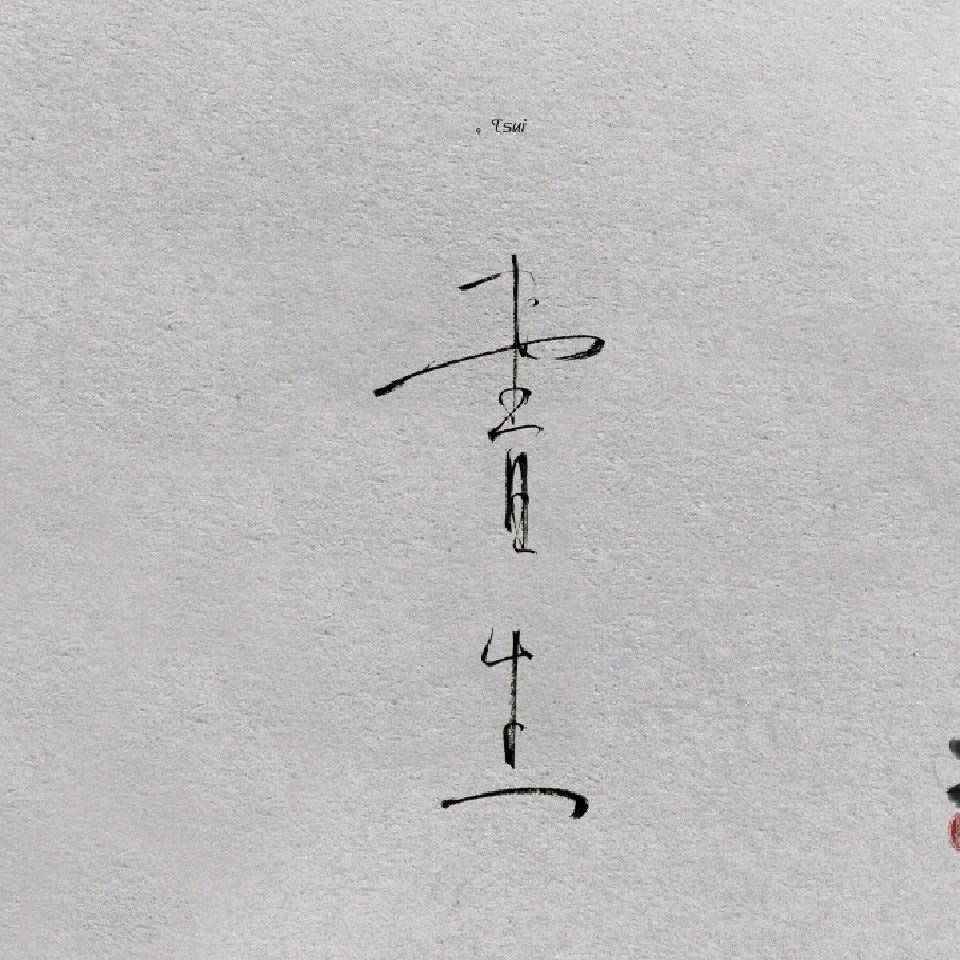 。Tsui
書生